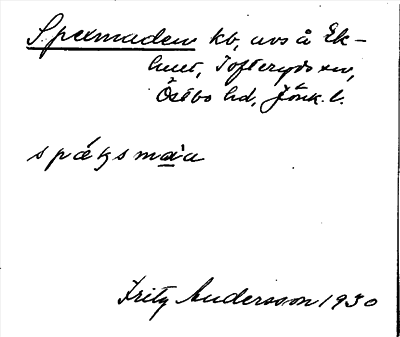 Spexmaden kb, avs å Ek-
hult, Tofteryds sn,
Östbo hd, Jönk. l.
spáksmàa
Fritz Andersson 1930